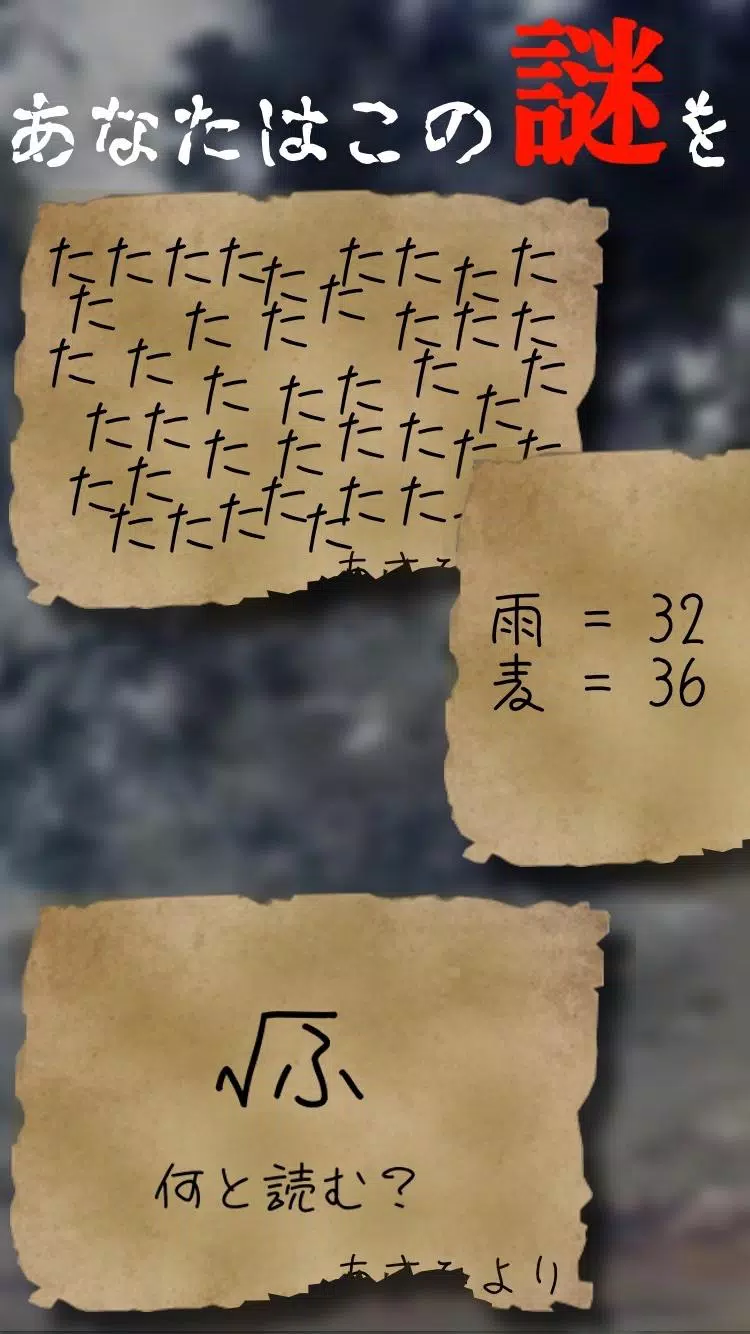 あなたはこの謎を
たたたたたたたたた
たたたたたたた
たたたたたたた
たたたたたたたたた
たたたたた
たたたた
雨 = 32
麦 = 36
√ふ
何と読む?
より